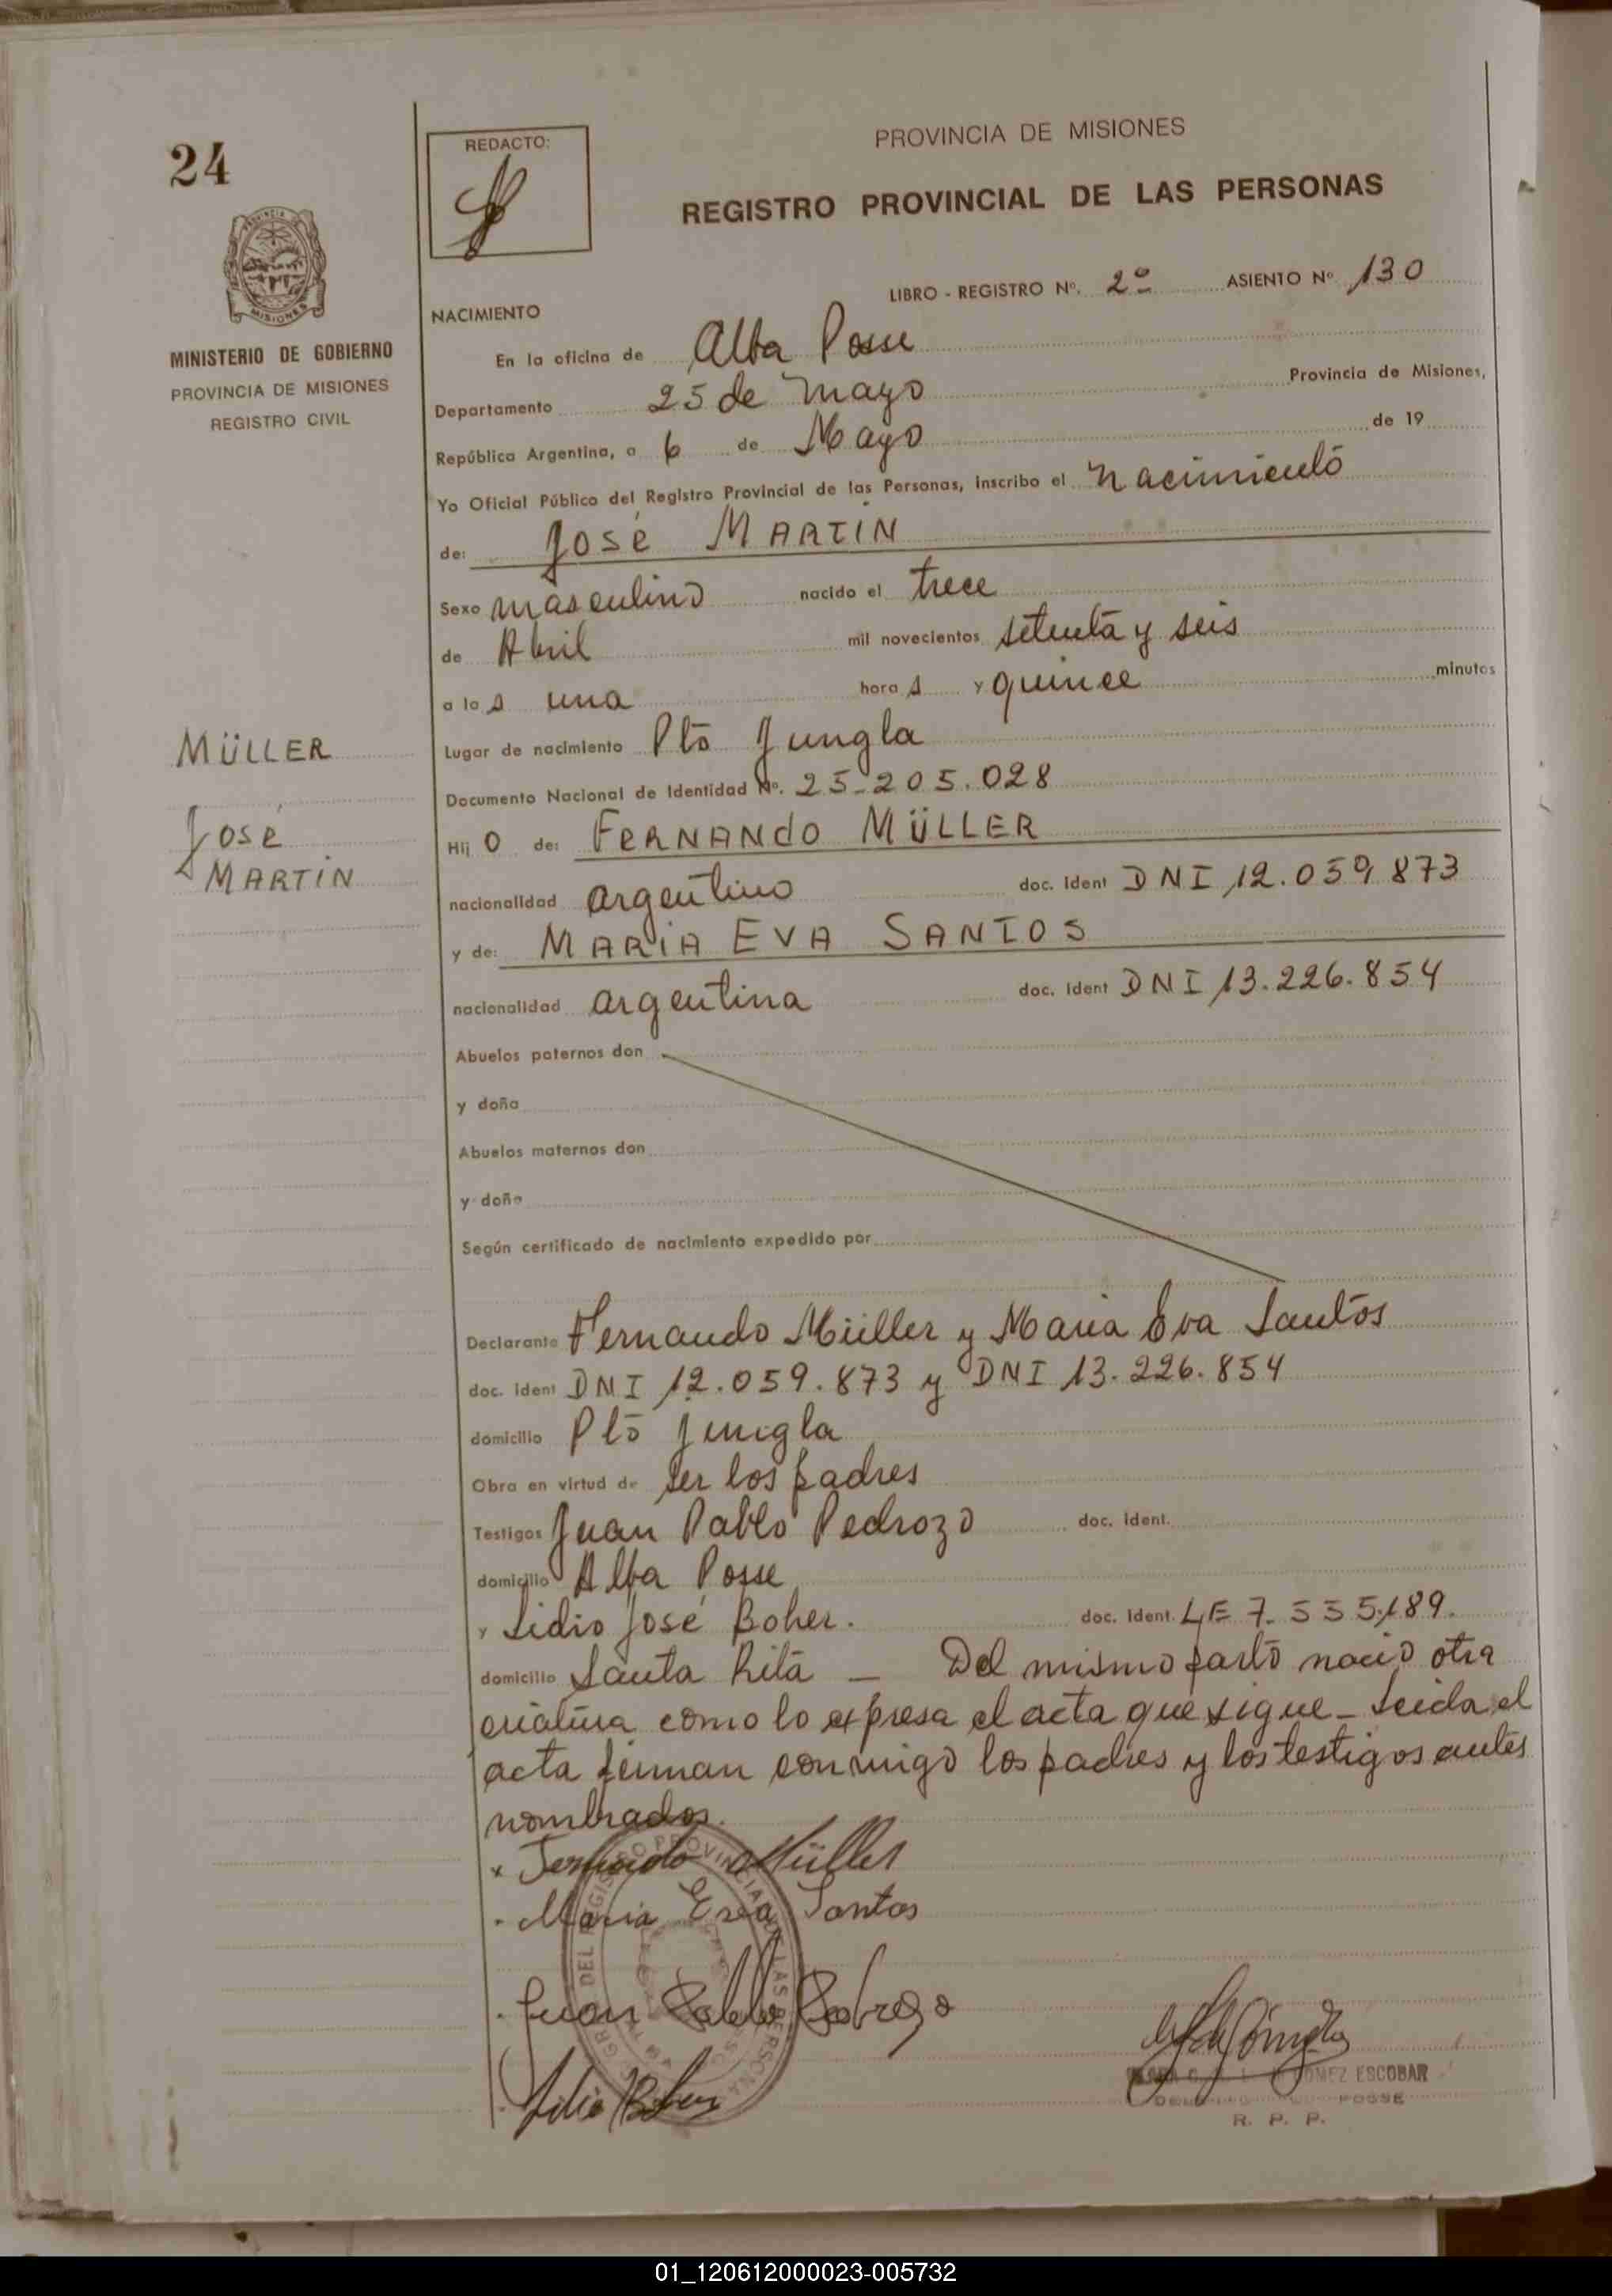 24
REDACTO:
PROVINCIA DE MISIONES
REGISTRO PROVINCIAL DE LAS PERSONAS
LIBRO - REGISTRO Nº. 2º ASIENTO Nº 130
NACIMIENTO
MISIONES
MINISTERIO DE GOBIERNO
PROVINCIA DE MISIONES
REGISTRO CIVIL
En la oficina de Alba Posse
Departamento 25 de Mayo Provincia de Misiones,
República Argentina, a 6 de Mayo de 19
Yo Oficial Público del Registro Provincial de las Personas, inscribo el Nacimiento
de: José MARTIN
Sexo masculino nacido el trece
de Abril mil novecientos setenta y seis
a las una horas y quince minutos
Lugar de nacimiento Pto Jungla
MÜLLER
José
MARTIN
Documento Nacional de Identidad Nº. 25.205.028
Hijo de: FERNANDO MÜLLER
nacionalidad argentino doc. ident DNI 12.059.873
y de: MARIA EVA SANTOS
nacionalidad argentina doc. ident DNI 13.226.854
Abuelos paternos don
y doña
Abuelos maternos don
y doña
Según certificado de nacimiento expedido por
Declarante Fernando Müller y Maria Eva Santos
doc. ident DNI 12.059.873 y DNI 13.226.854
domicilio Pto Jungla
Obra en virtud de ser los padres
Testigos Juan Pablo Pedrozo doc. ident.
domicilio Alba Posse
y Lidio José Boher. doc. ident. LE 7.535.189.
domicilio Santa Rita — Del mismo parto nació otra
criatura como lo expresa el acta que sigue - Leida el
acta firman conmigo los padres y los testigos antes
nombrados.
x Fernando Müller
Maria Eva Santos
Juan Pablo Pedrozo
GOMEZ ESCOBAR
POSSE
R. P. P.
01_120612000023-005732